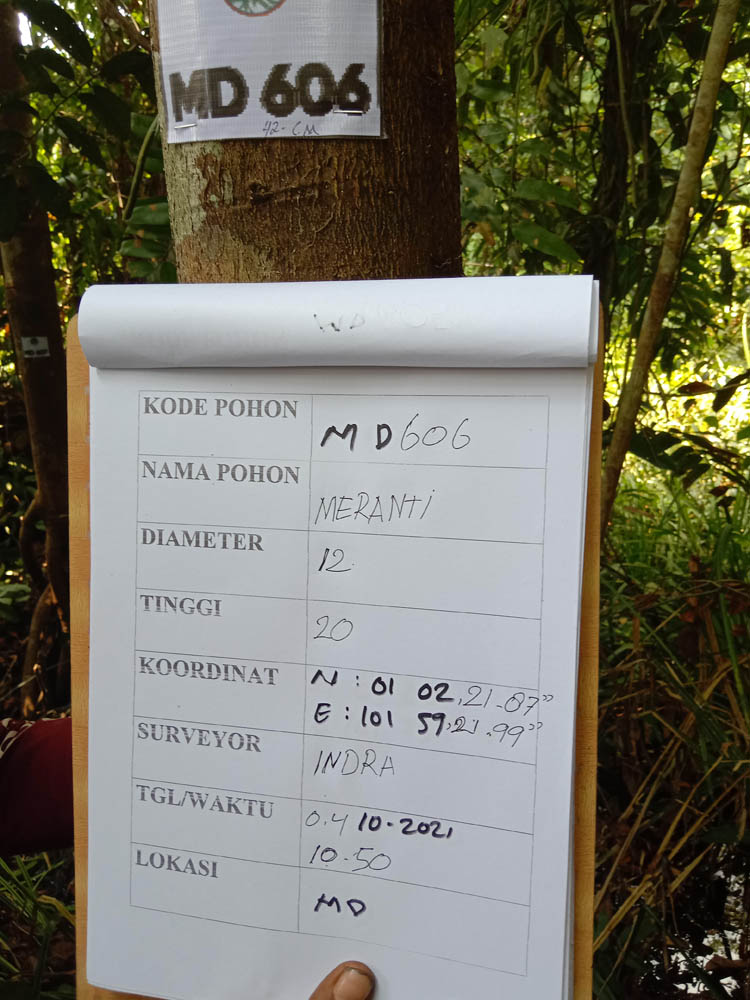 MD 606
42-CM
KODE POHON
MD606
NAMA POHON
MERANTi
DIAMETER
12
TINGGI
20
KOORDINAT
N : 01 02,21.07"
E : 101 59,21.99"
SURVEYOR
INDRA
TGL/WAKTU
0.4 10-2021
10-50
LOKASI
MD